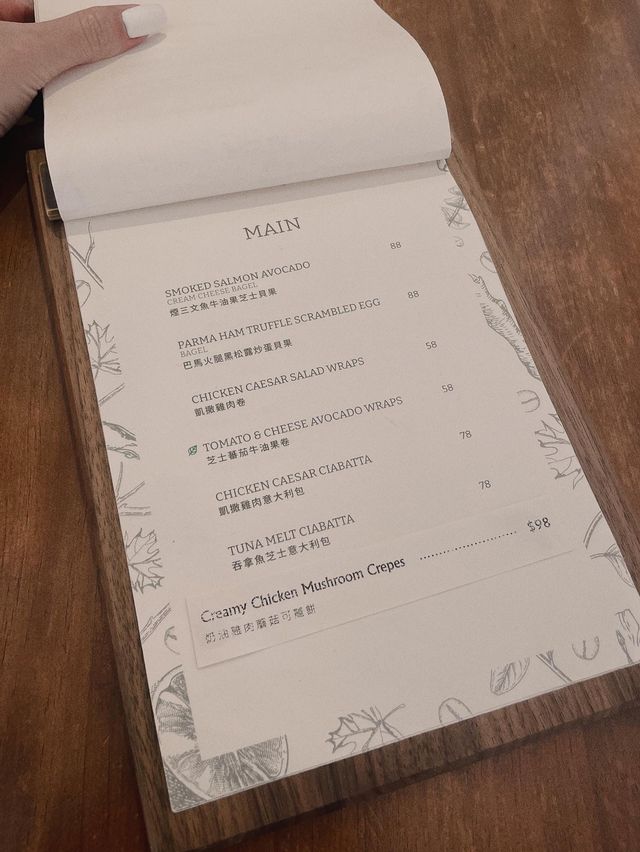 MAIN
SMOKED SALMON AVOCADO 88
CREAM CHEESE BAGEL
煙三文魚牛油果芝士貝果
PARMA HAM TRUFFLE SCRAMBLED EGG 88
BAGEL
巴馬火腿黑松露炒蛋貝果
CHICKEN CAESAR SALAD WRAPS 58
凱撒雞肉卷
TOMATO & CHEESE AVOCADO WRAPS 58
芝士蕃茄牛油果卷
CHICKEN CAESAR CIABATTA 78
凱撒雞肉意大利包
TUNA MELT CIABATTA 78
吞拿魚芝士意大利包
Creamy Chicken Mushroom Crepes ........................ $98
奶油雞肉蘑菇可麗餅